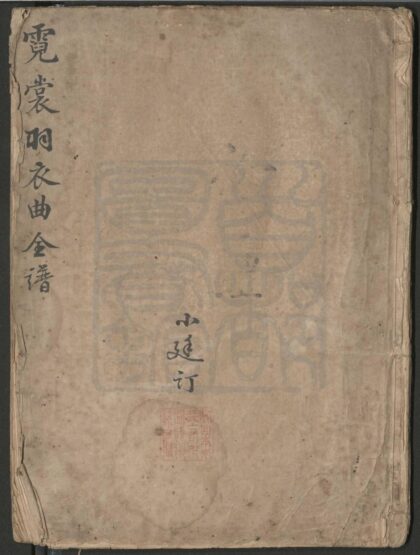 霓裳羽衣曲全谱
小廷订